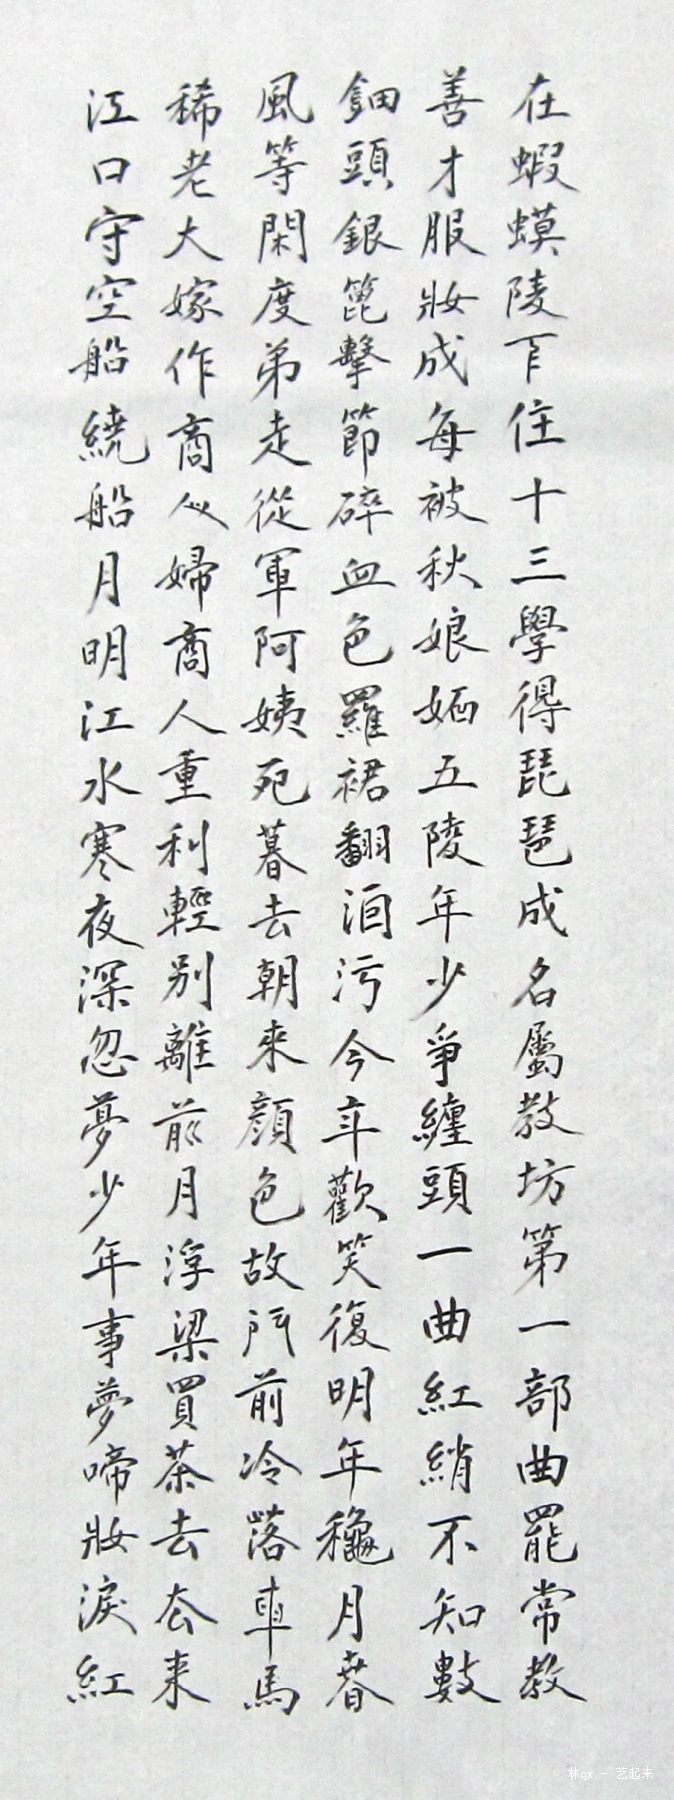 在蝦蟆陵下住十三學得琵琶成名屬教坊第一部曲罷常教
善才服妝成每被秋娘妬五陵年少爭纏頭一曲紅綃不知數
鈿頭銀篦擊節碎血色羅裙翻洒污今年歡笑復明年龝月春
風等閑度弟走從軍阿姨死暮去朝來顔色故門前冷落車馬
稀老大嫁作商人婦商人重利輕別離前月浮梁買茶去去来
江口守空船繞船月明江水寒夜深忽夢少年事夢啼妝淚紅
© 林qz - 艺起来